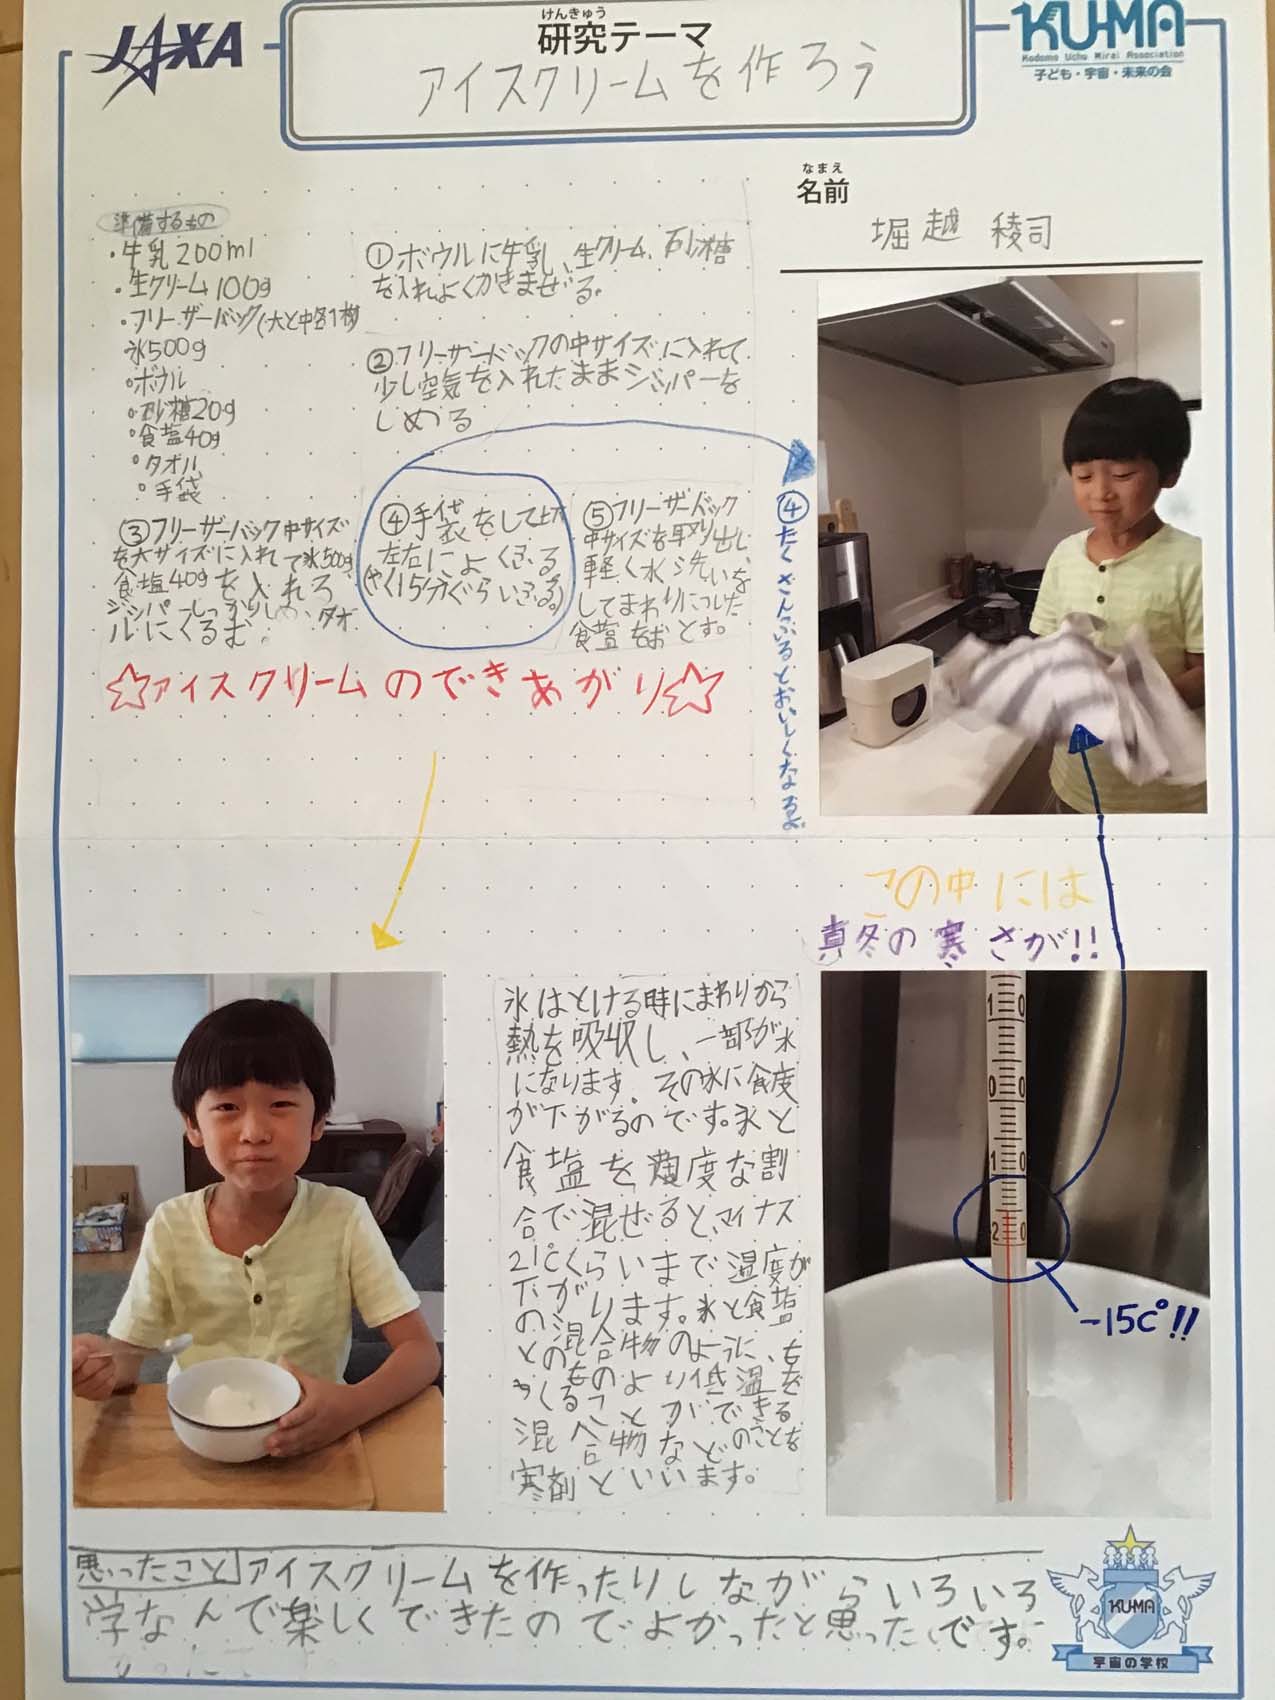 JAXA
けんきゅう
研究テーマ
アイスクリームを作ろう
KU-MA
Kodomo Uchu Mirai Association
子ども・宇宙・未来の会
なまえ
名前
堀越 稜司
準備するもの
・牛乳200ml
・生クリーム100g
・フリーザーバック(大と中各1枚)
氷500g
・ボウル
・砂糖20g
・食塩40g
・タオル
・手袋
①ボウルに牛乳、生クリーム、砂糖
を入れよくかきまぜる。
②フリーザーバックの中サイズに入れて
少し空気を入れたままジッパーを
しめる
③フリーザーバック中サイズ
を大サイズに入れて氷500g
食塩40gを入れろ
ジッパーしっかりしめ、タオ
ルにくるむ。
④手袋をして
左右によくふる
(やく15分ぐらいふる。)
⑤フリーザーバック
中サイズを取り出し、
軽く水洗いを
してまわりについた
食塩をおとす。
☆アイスクリームのできあがり☆
④たくさんふるとおいしくなるよ
この中には
真冬の寒さが!!
氷はとける時にまわりから
熱を吸収し、一部が水
になります。その水に食
が下がるのです。氷と
食塩を適度な割
合で混ぜると、マイナス
21℃くらいまで温度が
下がります。氷と食塩
との混合物のように、
ものより低温を
つくることができる
混合物などのことを
寒剤といいます。
10
0 0
10
20
-15C°!!
思ったこと アイスクリームを作ったりしながらいろいろ
学なんで楽しくできたのでよかったと思った、です。
KU-MA
宇宙の学校